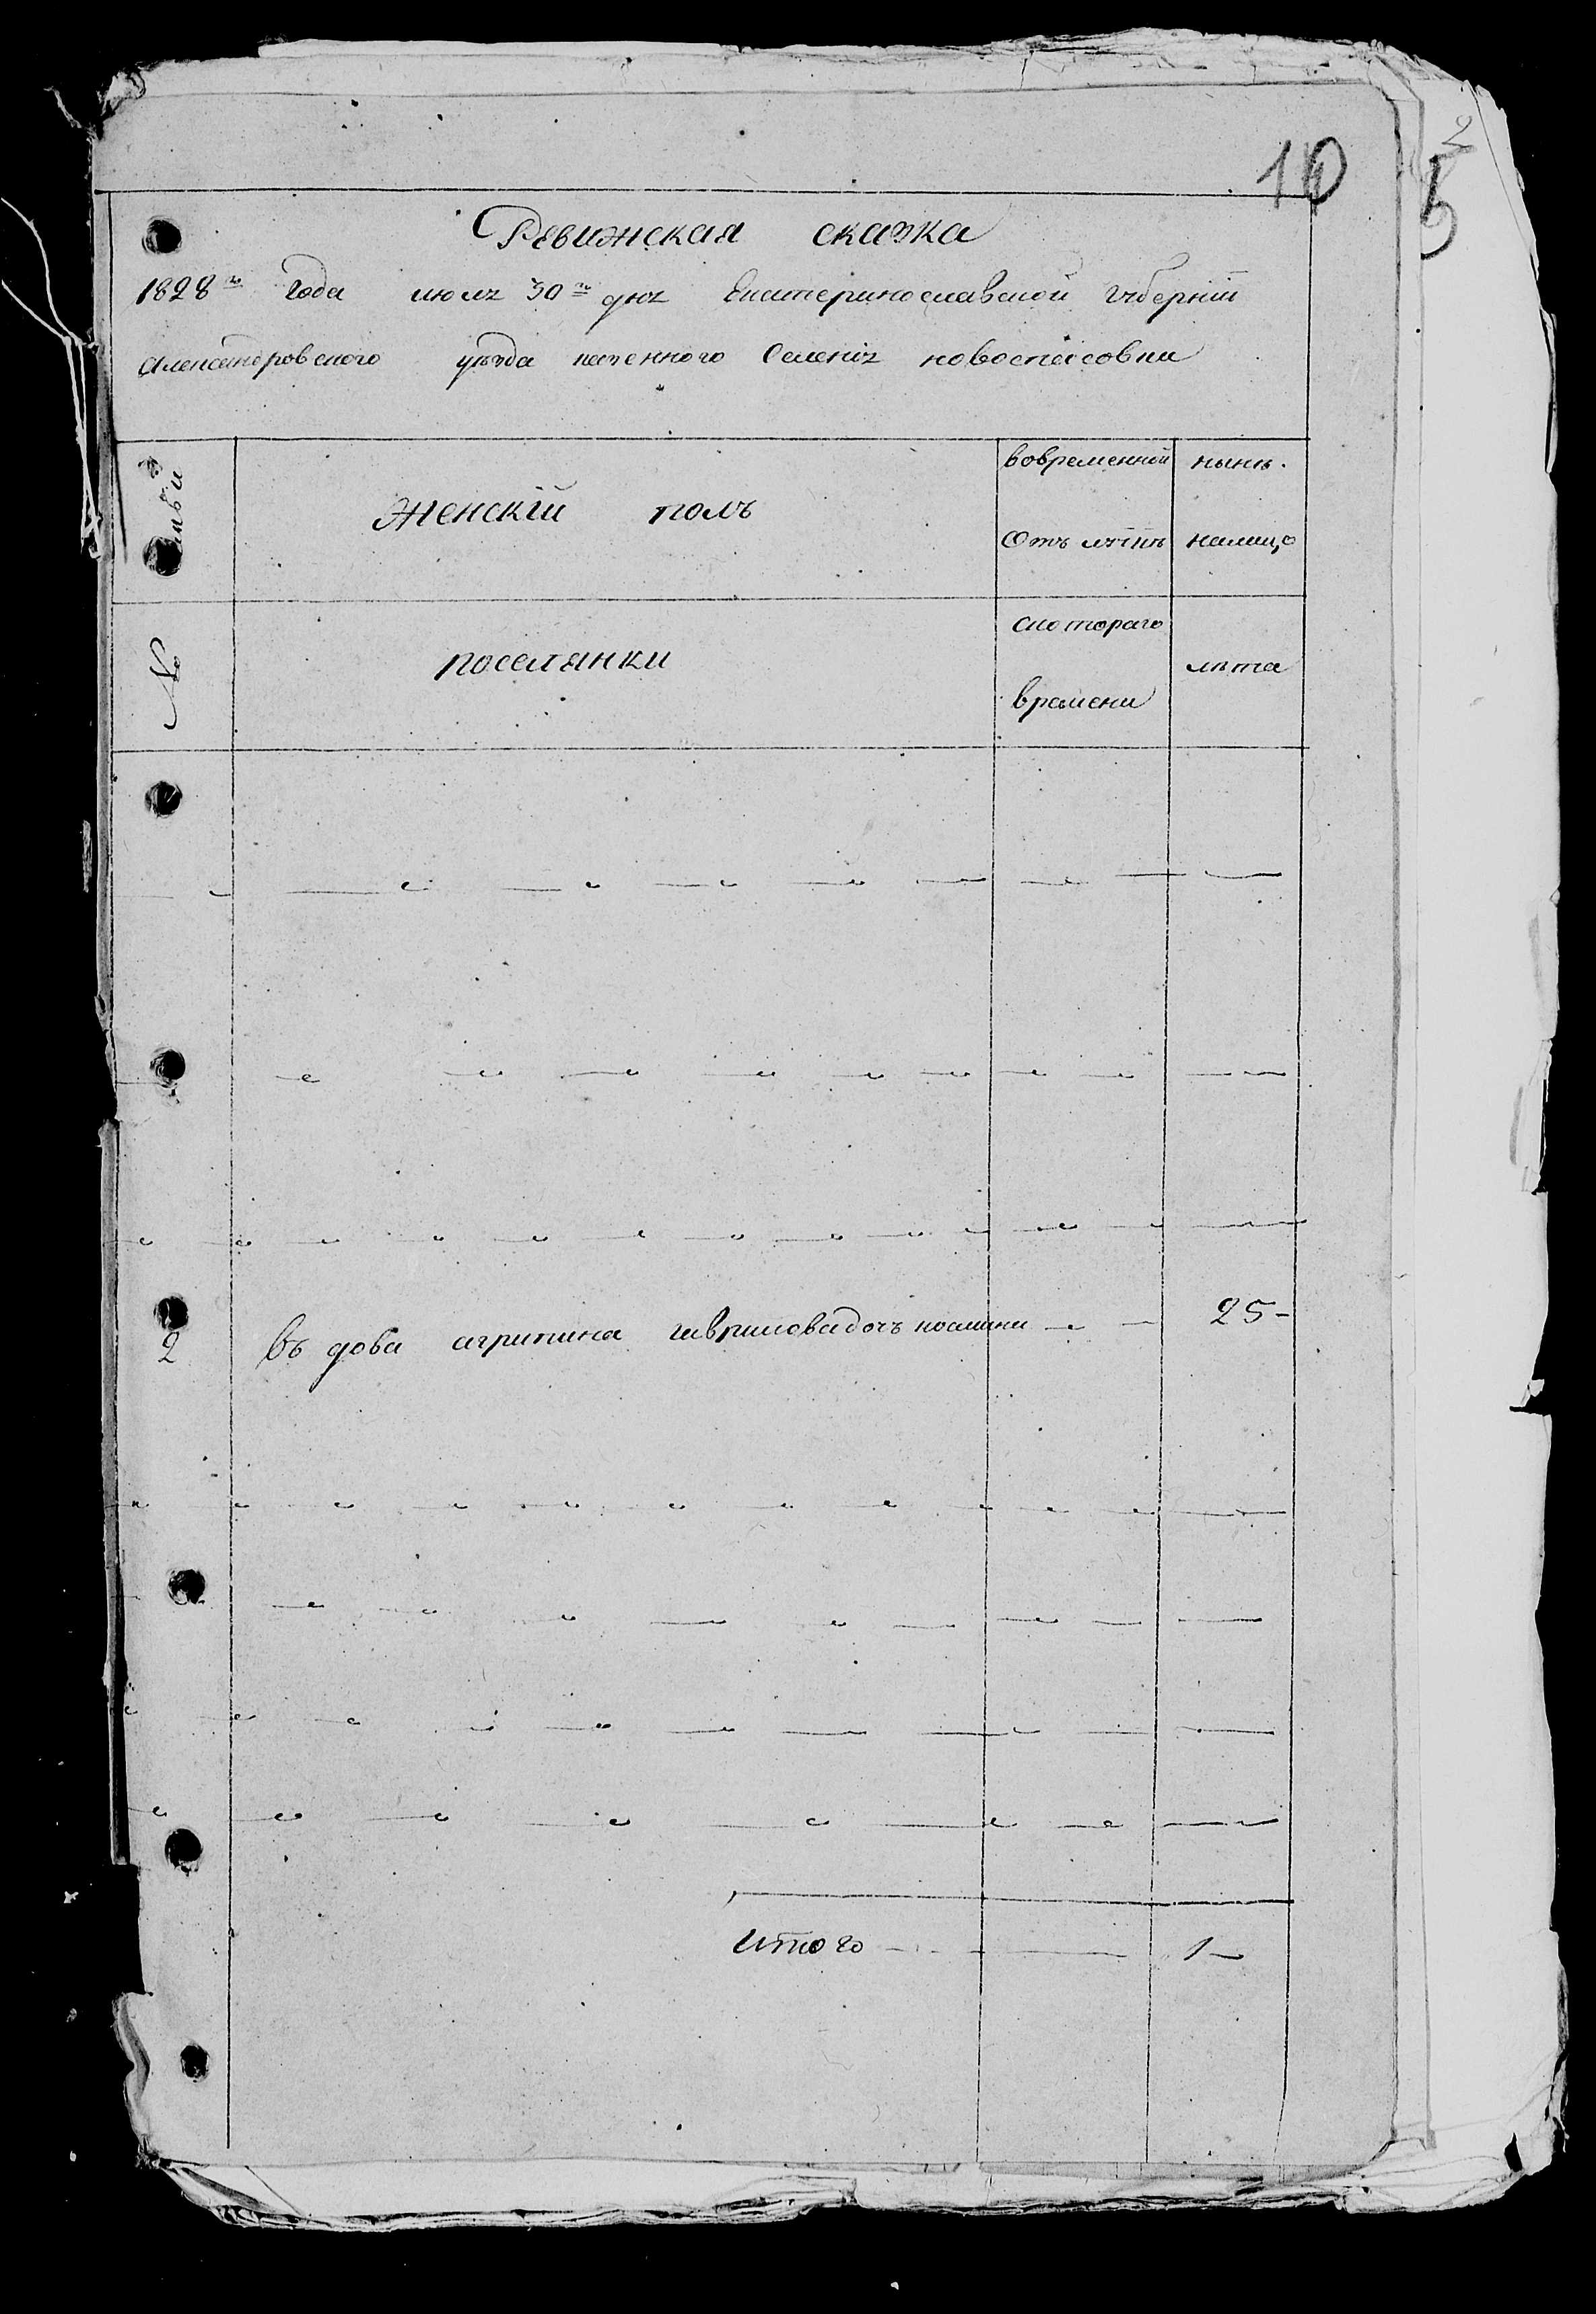 10
2
5
Ревижская сказка
1828го года июля 30го дня Екатеринославской губернiи
Александровского уѣзда казенного Селенiя новоспасовки
Женскiй полъ
вовременной
Отъ лучкѣ
нынѣ.
налицо
№
поселянки
скотораго
времени
лѣта
2 въ дова агрипина гаврилова дочь — — 25-
итого — — 1—